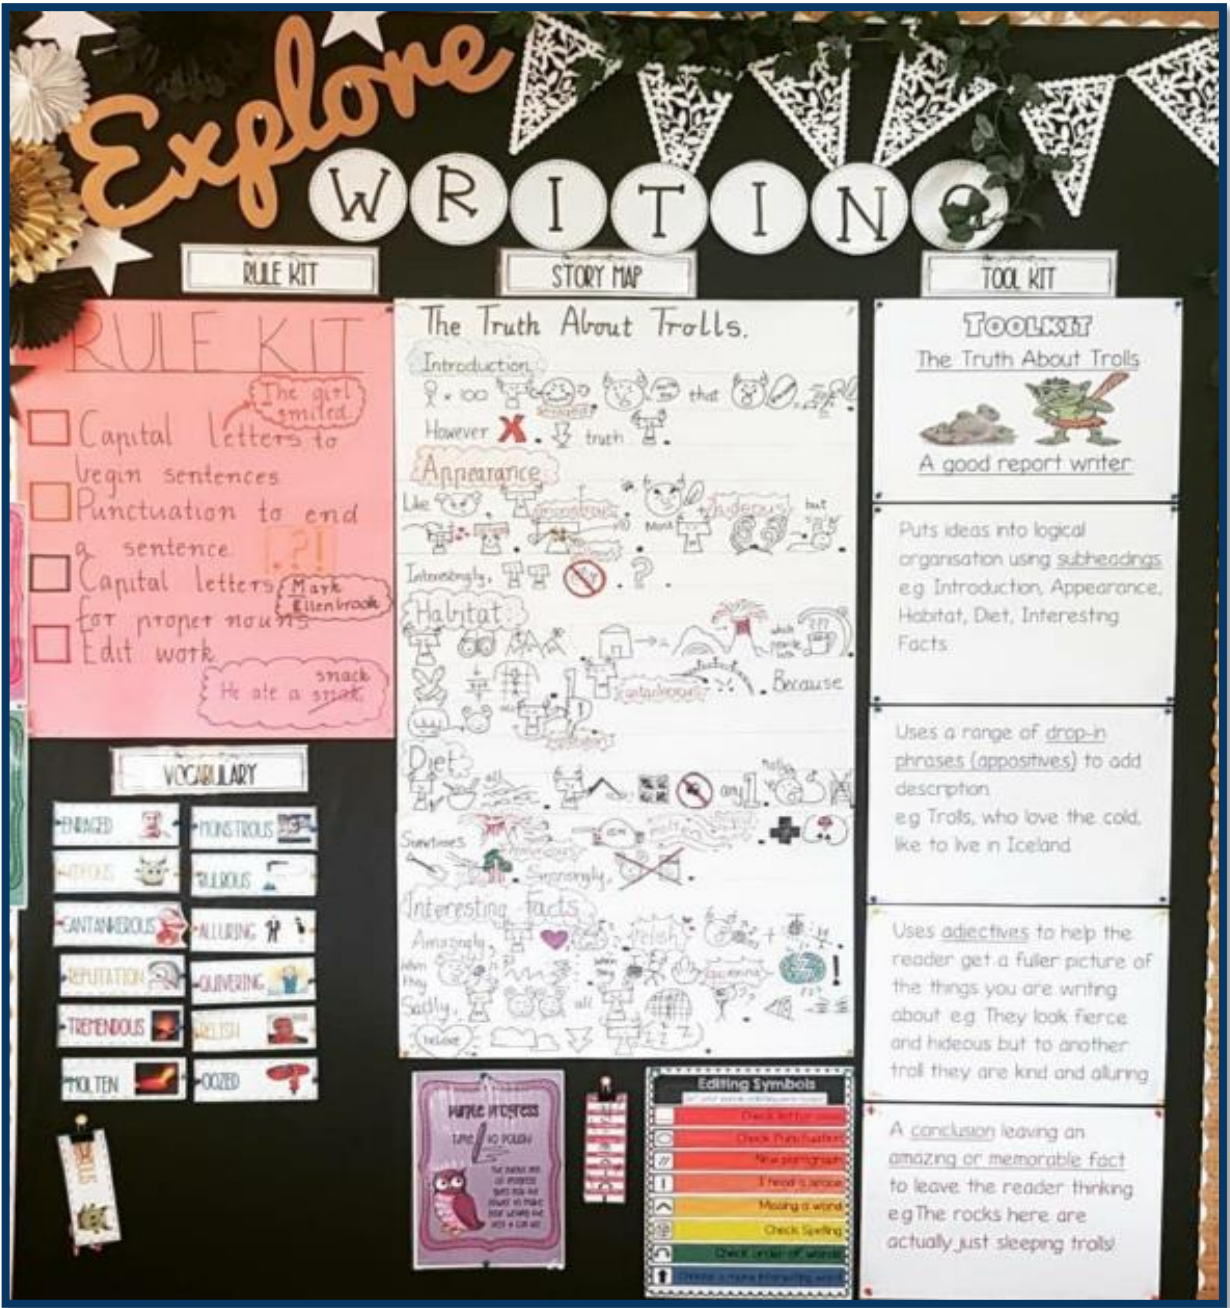 Explore
WRITING
RULE KIT
STORY MAP
TOOL KIT
RULE KIT
The girl
smiled.
Capital letters to
begin sentences
Punctuation to end
a sentence
. ? !
Capital letters
Mark
Ellenbrook
for proper nouns
Edit work
snack
He ate a snak
VOCABULARY
ENRAGED
MONSTROUS
HIDEOUS
BULBOUS
CANTANKEROUS
ALLURING
REPUTATION
QUIVERING
TREMENDOUS
RELISH
MOLTEN
OOZED
The Truth About Trolls.
Introduction
x 100
that
However X. truth
Appearance
Like
monstrous
hideous but
Most
Interestingly,
?
Habitat
which
cantankerous
Because
Diet
all
any 1.
Sometimes
Surprisingly,
Interesting Facts
Amazingly,
relish
+
when
they
when
they
quivering
!
Sadly,
all
believe
TOOLKIT
The Truth About Trolls
A good report writer
Puts ideas into logical
organisation using subheadings
e.g Introduction, Appearance,
Habitat, Diet, Interesting
Facts
Uses a range of drop-in
phrases (appositives) to add
description
e.g Trolls, who love the cold,
like to live in Iceland
Uses adjectives to help the
reader get a fuller picture of
the things you are writing
about e.g They look fierce
and hideous but to another
troll they are kind and alluring
A conclusion leaving an
amazing or memorable fact
to leave the reader thinking
e.g The rocks here are
actually just sleeping trolls!
Purple Progress
TIME TO POLISH
Editing Symbols
Check letter
Check Punctuation
New paragraph
I need a space
Missing a word
Check Spelling
Check order of words
Choose a more interesting word